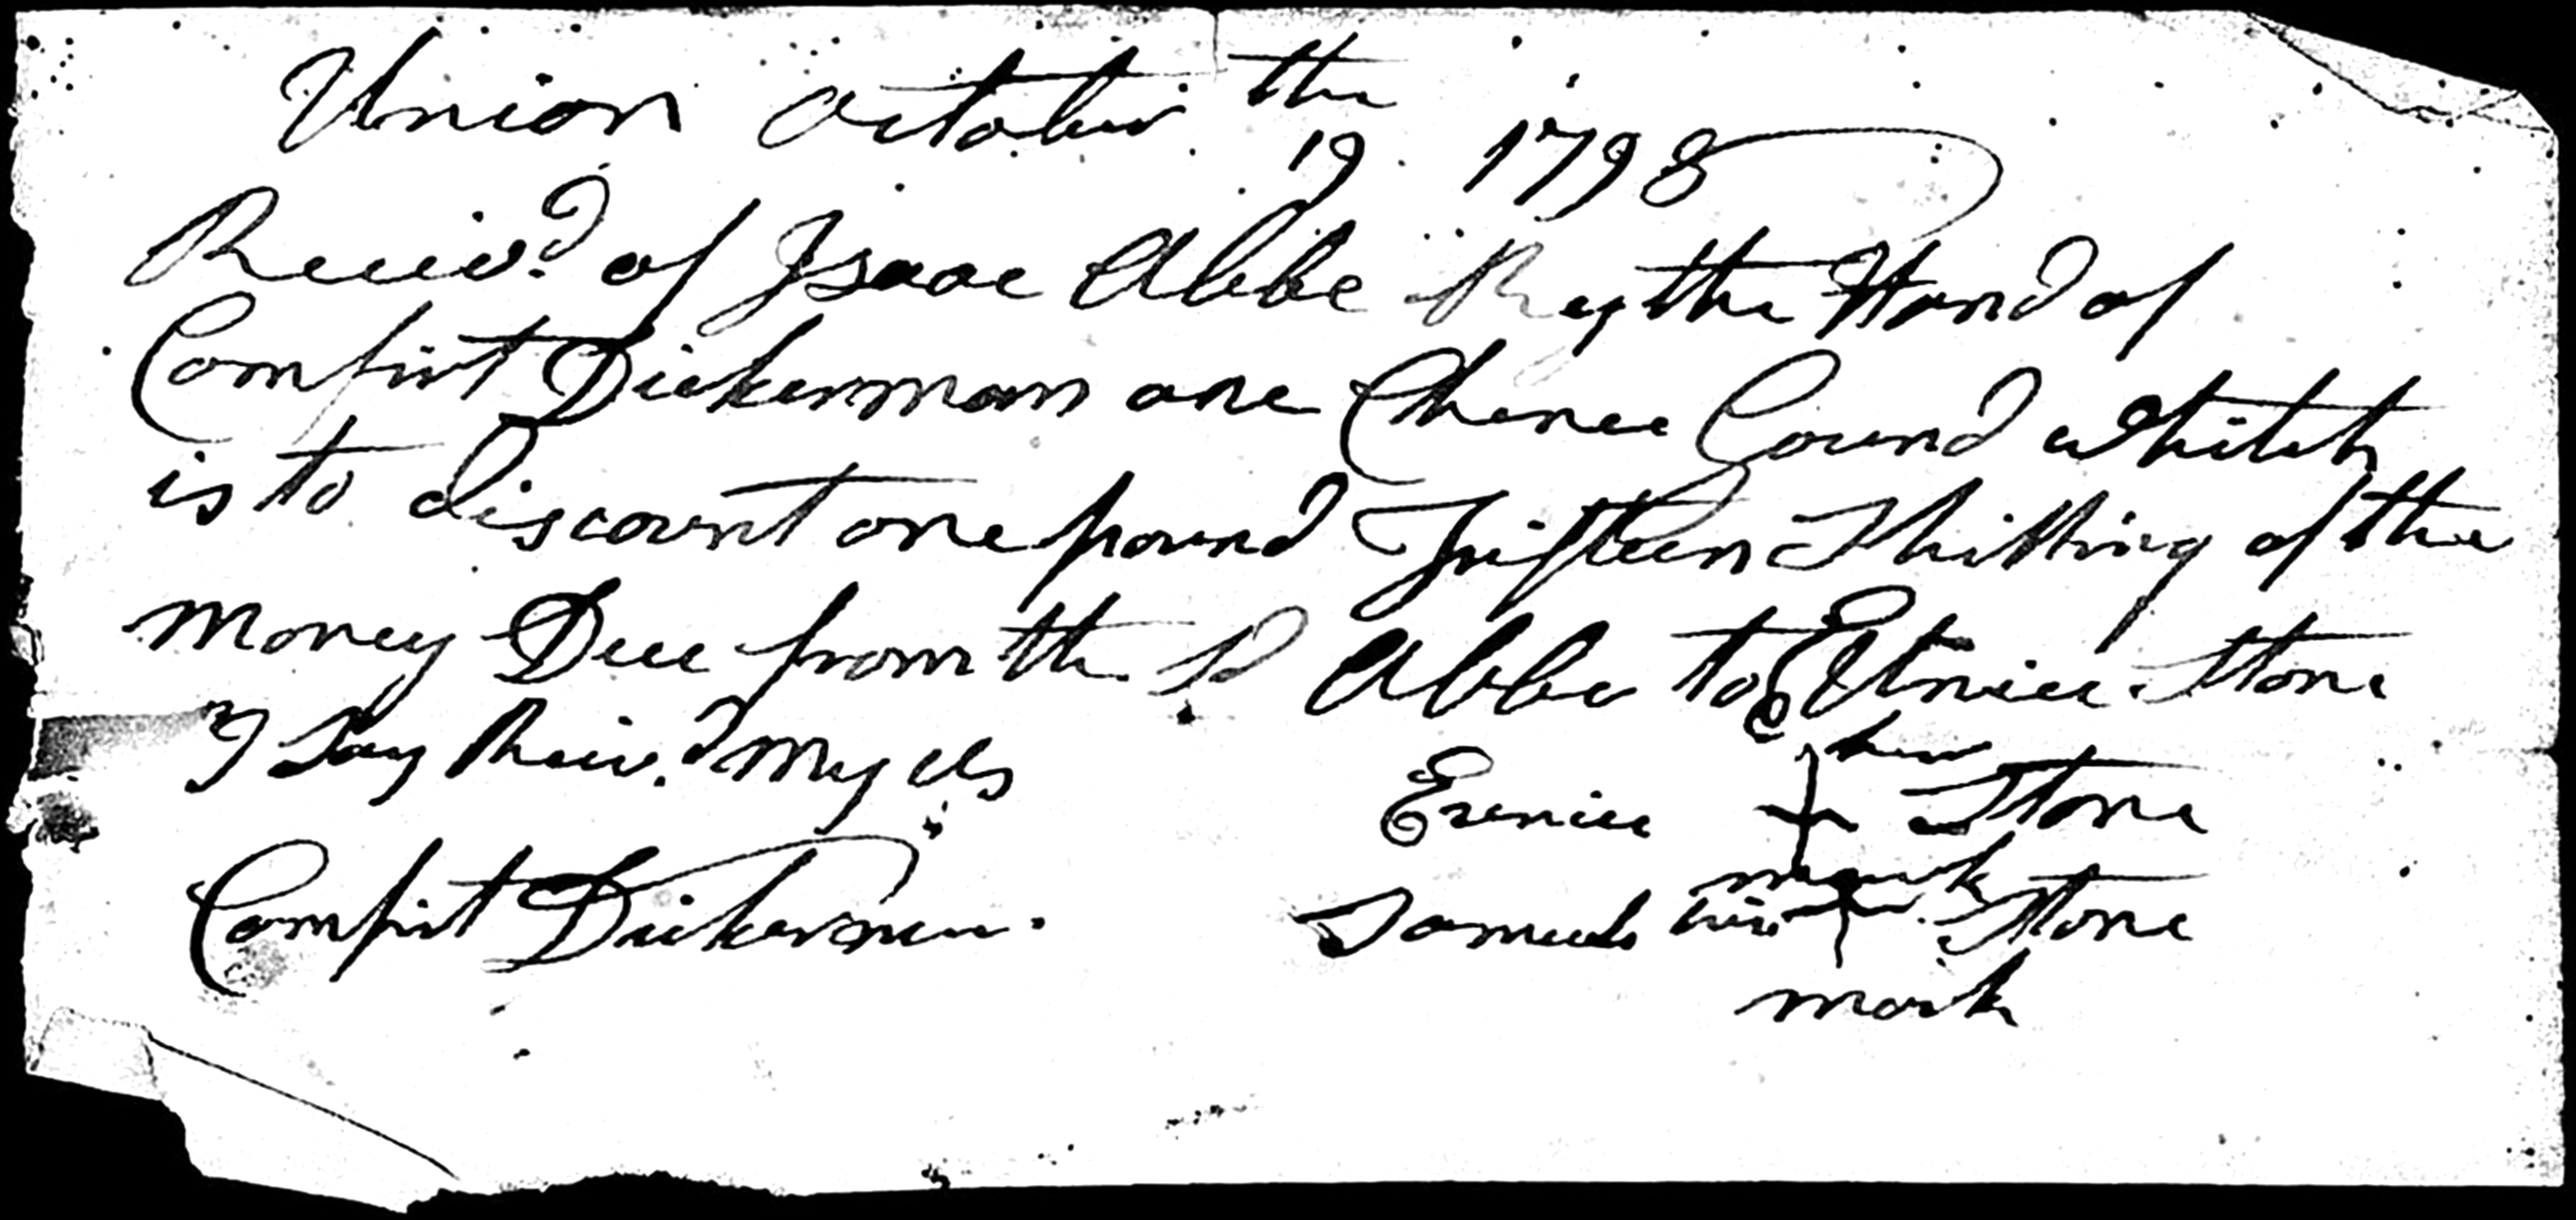 Union October the 19 1798
Receiv.d of Isaac Abbe By the Hand of
Comfirt Dickerman one Chence Cound whitch
is to discount one pound Fifteen Shilling of the
money Due from the Sd Abbe to Eunice Stone
I Say Reiv.d my us
her
Eunice + Stone
mark
Comfirt Dickerman. Samuel his + Stone
mark